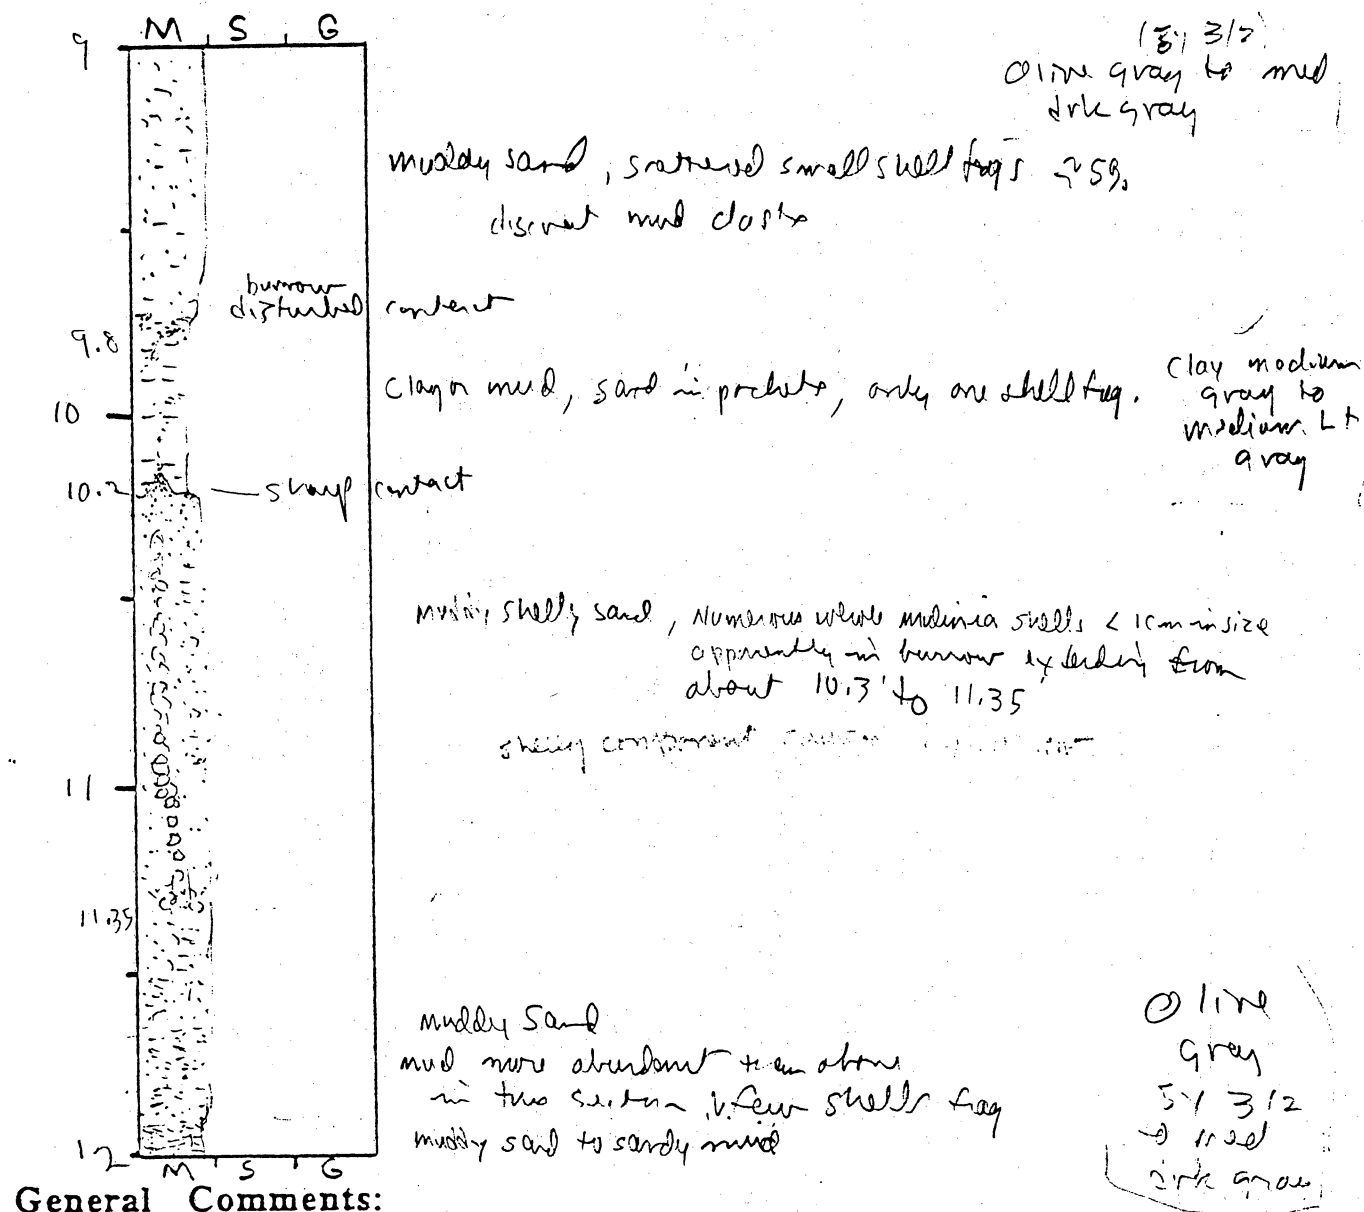 M S G
9
(5y 3/2)
Olive gray to med
drk gray
muddy sand, scattered small shell frags ~5%
discret mud clasts
burrow
disturbed contact
9.8
clay or mud, sand in pockets, only one shell frag.
Clay medium
gray to
medium Lt
gray
10
10.2
sharp contact
muddy shelly sand, Numerous whole mulinia shells < 1cm in size
apparently in burrow extending from
about 10.3' to 11.35'
shelly component
11
11.35
muddy sand
mud more abundant than above
in this section, v. few shells frag
muddy sand to sandy mud
Olive
gray
5y 3/2
→ med
drk gray
12
M S G
General Comments: